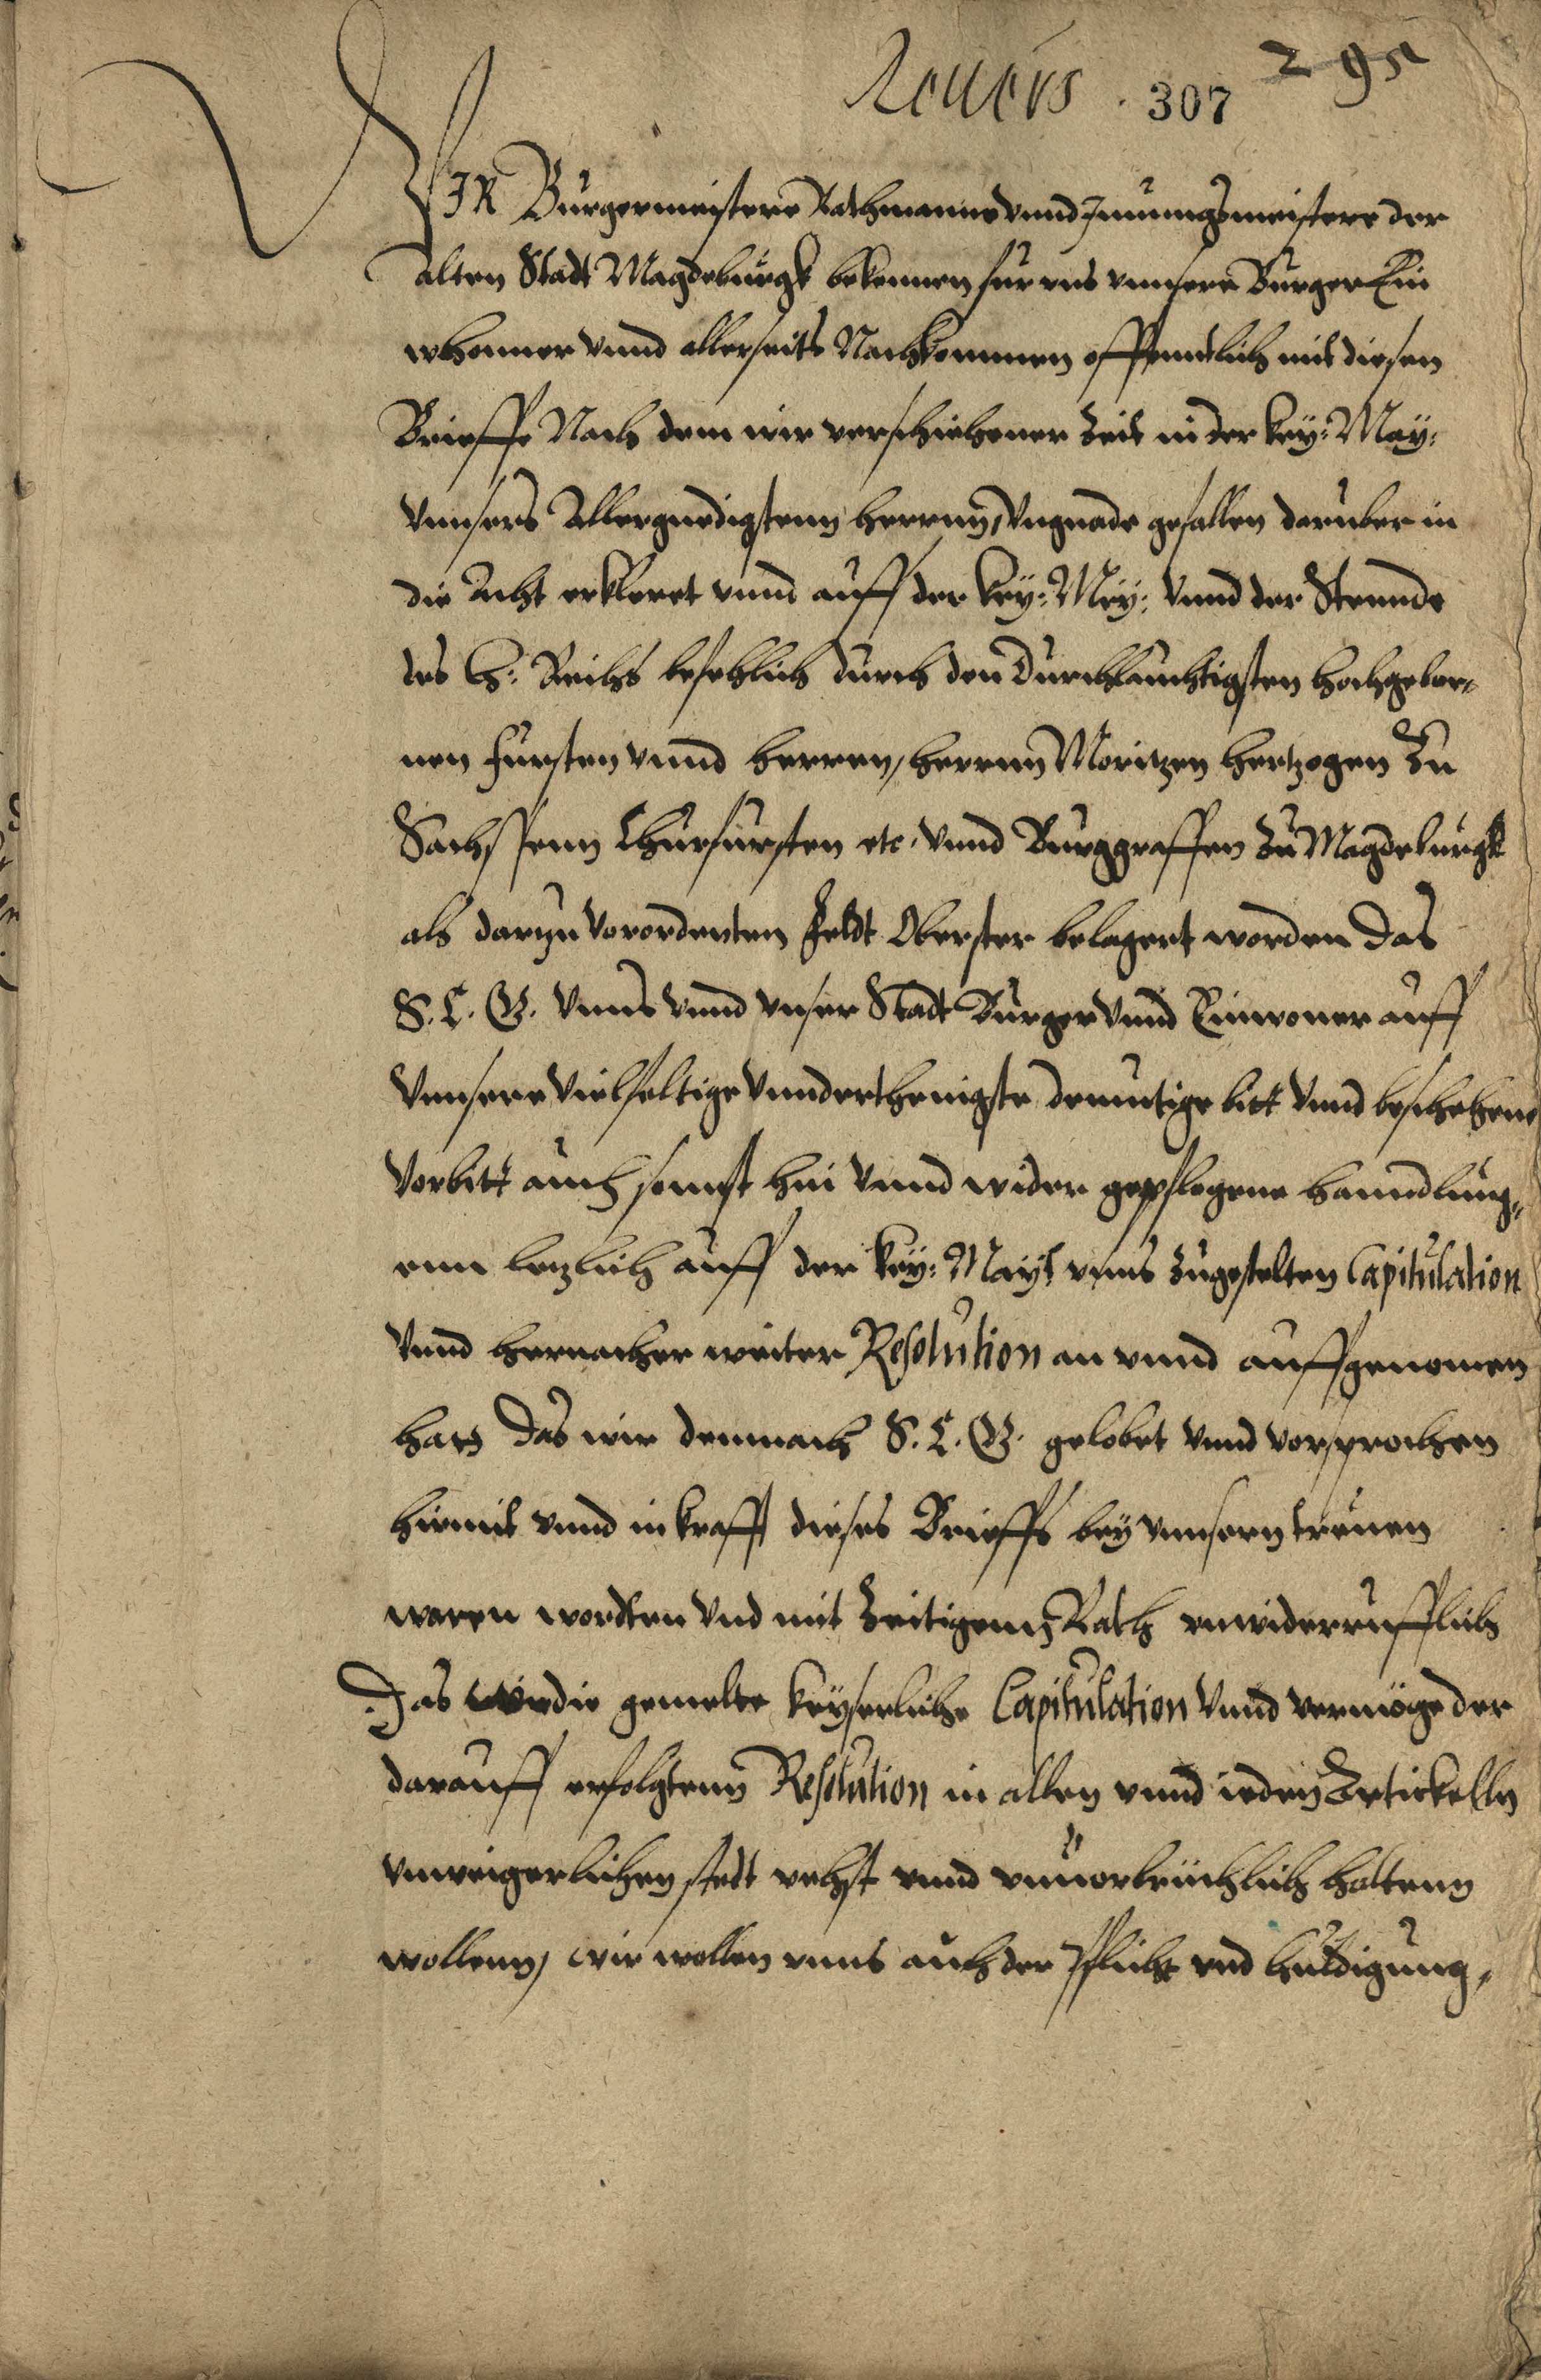 Reuers 307 295
WIR Burgermeistere Rathmanne vnnd Innungsmeistere der
alten Stadt Magdeburgk bekennen fur vns vnnsere Burger Ein
whonner vnnd allerseits Nachkommen offenntlich mit diesen
Brieffe Nach dem wir verschiehener Zeit in der Key: May:
vnnsers Allergnedigstenn herrnn, Vngnade gefallen daruber in
die Acht erkleret vnnd auff der Key: May: vnnd der Stennde
des H: Reichs befehlich durch den Durchlauchtigsten hochgebor„
nen fursten vnnd herren, herrnn Moritzen hertzogen Zu
Sachssenn Churfursten etc. vnnd Burggraffen Zu Magdeburgk
als darzu verordenten Feldt Oberster belagert worden Das
S. C. G. vnns vnnd vnser Stadt Burger vnnd Einwoner auff
vnnsere vielfeltige vnnderthenigste demutige bitt vnnd beschehene
Vorbitt auch sonnst hin vnnd wider gepflogene hanndlung„
enn letzlich auff der Key: Mayt vnns Zugestelten Capitulation
Vnnd hernacher weiter Resolution an vnnd auffgenomen
hatt Das wir demnach S. C. G. gelobet vnnd versprochen
hiemit vnnd in krafft dieses Brieffs bey vnnsern treuen
waren wordten Vnd mit Zeitigem Rath vnwiderrufflich
Das wir die gemelte Keyserliche Capitulation Vnnd vermöge der
darauff erfolgtenn Resolution in allen vnnd ieden Artickelln
vnweigerlichen stett vehst vnnd vnuorbrüchlich haltenn
wollenn, wir wollen vnns auch der Pflicht vnd huldigung„